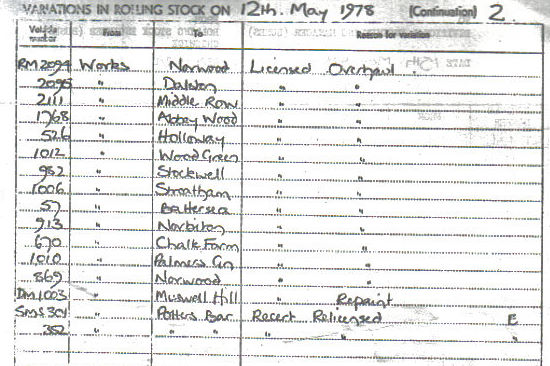 VARIATIONS IN ROLLING STOCK ON 12th. May 1978 (Continuation) 2.
Vehicle number From To Reason for variation
RM2094 Works Norwood Licensed Overhaul.
2095 " Dalston " "
2111 " Middle Row " "
1768 " Abbey Wood " "
526 " Holloway " "
1012 " Wood Green " "
982 " Stockwell " "
1006 " Streatham " "
57 " Battersea " "
913 " Norbiton " "
670 " Chalk Farm " "
1010 " Palmers Gn " "
869 " Norwood " "
DM1003 " Muswell Hill " Repaint
SMS301 " Potters Bar Recert Relicensed E
352 " " " " " "